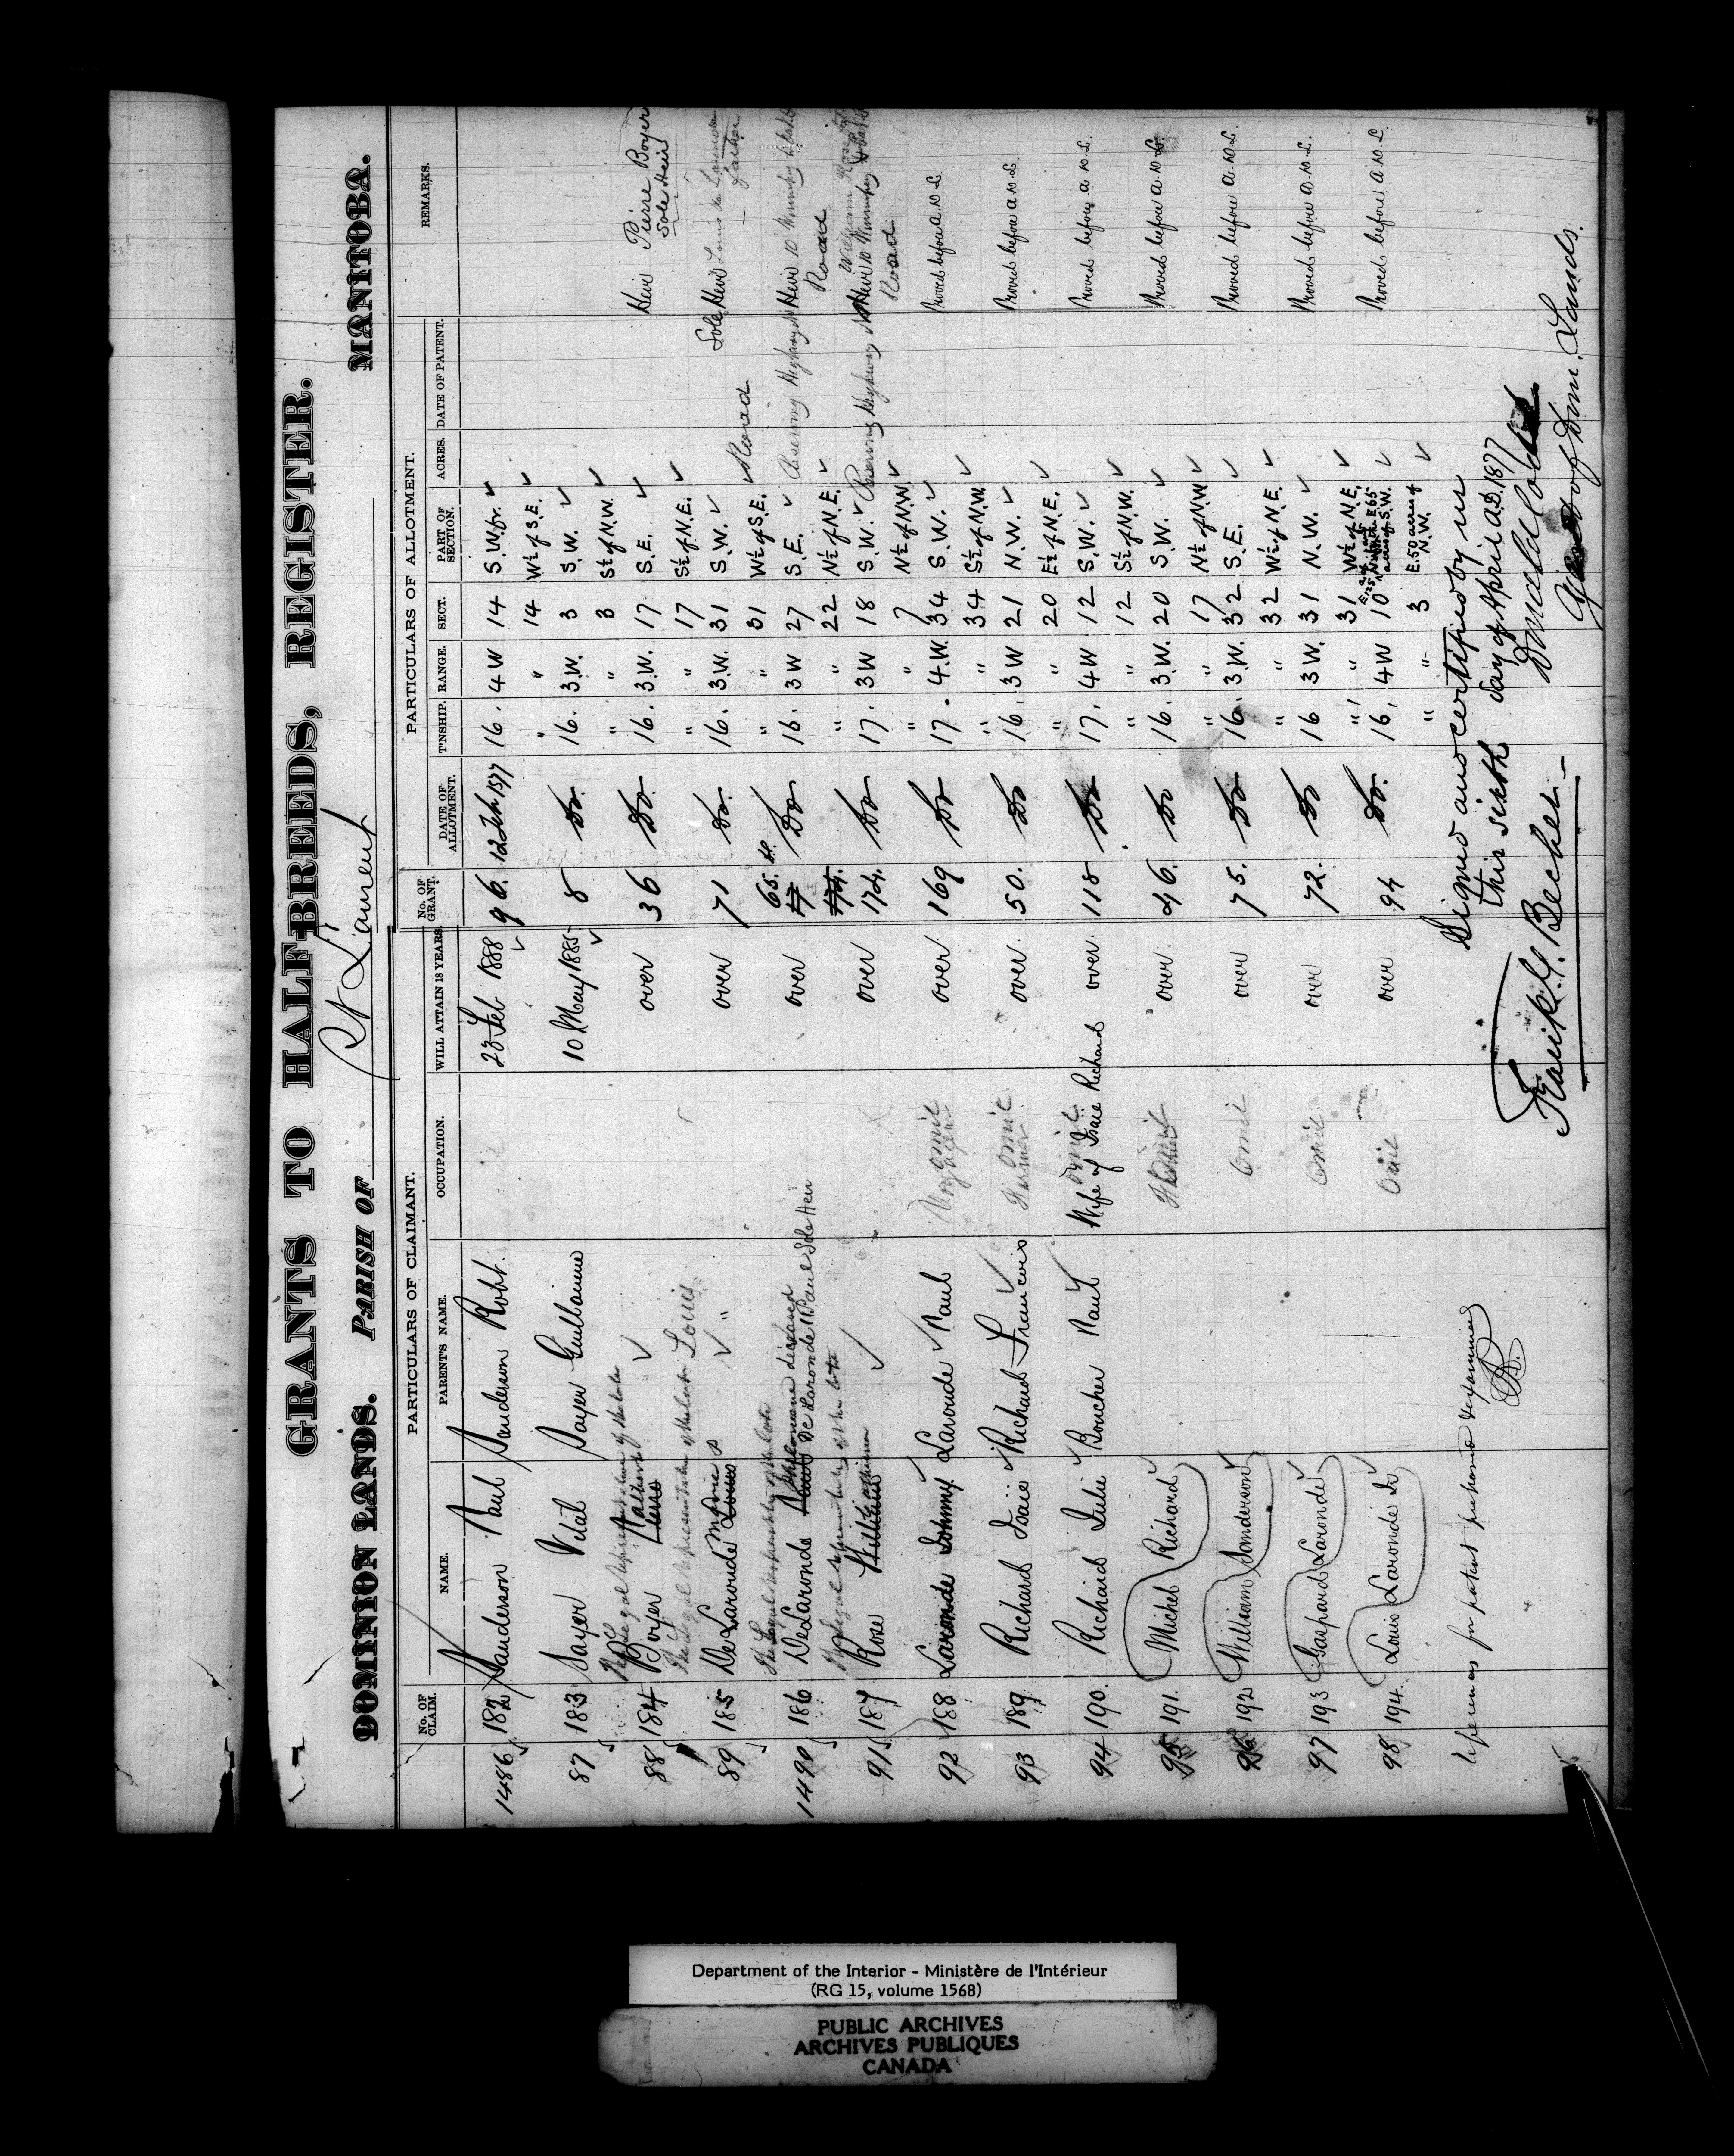 GRANTS TO HALF-BREEDS, REGISTER.
DOMINION LANDS. PARISH OF St Laurent MANITOBA.
PARTICULARS OF CLAIMANT. PARTICULARS OF ALLOTMENT.
No. OF CLAIM. NAME. PARENT'S NAME. OCCUPATION. WILL ATTAIN 18 YEARS. No. OF GRANT. DATE OF ALLOTMENT. T'NSHIP. RANGE. SECT. PART OF SECTION. ACRES. DATE OF PATENT. REMARKS.
1486 182 Sanderson Paul Sanderson Robt. 23 Feb 1888 96. 12 Feb 1877 16. 4 W 14 S.W. fr.
" " 14 W½ of S.E.
87 183 Sayer Vital Sayer Guillaume 10 May 1885 8 Do. 16. 3.W. 3 S.W.
" " 3 S½ of N.W.
The Legal representative of the late
88 184 Boyer Pierre over 36 Do. 16. 3.W. 17 S.E. Heir Pierre Boyer
Sole Heir
" " 17 S½ of N.E.
The Legal representative of the late Louis
89 185 De Laronde Marie Louis " over 71 Do. 16. 3.W. 31 S.W. Sole Heir Louis de Laronde
father
" " 31 W½ of S.E. Road
The Legal representative of the late
1490 186 DeLaronde Paul Philomene deceased De Laronde Paul Sole Heir over 65. Do 16. 3 W 27 S.E. Reserving Highway Heir
Road
" " 22 N½ of N.E.
The Legal representative of the late
91 187 Rose William over 174. Do 17. 3 W 18 S.W. Reserving Highway William Rose
Road
" " 7 N½ of N.W.
92 188 Laronde Johnny Laronde Paul Omit over 169 Do 17. 4.W. 34 S.W. Proved before a. D.L.
" " 34 S½ of N.W.
93 189 Richard Isaie Richard Francois Farmer Omit over 50. Do 16. 3 W 21 N.W. Proved before a D.L.
" " 20 E½ of N.E.
94 190. Richard Julie Boucher Paul Omit Wife of Isaie Richard over 118 Do 17. 4 W 12 S.W. Proved before a D.L.
" " 12 S½ of N.W.
95 191. Michel Richard over 46. Do 16. 3 W. 20 S.W. Proved before a D.L.
" " 17 N½ of N.W
96 192 William Sanderson Omit over 75. Do 16. 3.W. 32 S.E. Proved before a D.L.
" " 32 W½ of N.E.
97 193 Gaspard Laronde Omit over 72. Do 16 3 W. 31 N.W. Proved before a. D.L.
" " 31 W½ of N.E.
98 194. Louis Laronde Jr Omit over 94 Do. 16. 4 W 10 acres of S.W. Proved before a D.L.
" " 3 E. 50 acres of N.W.
References for patent purposes examined
Signed and certified by us
this sixth day of April A.D. 1877
Frank G. Becher
Donald Codd
Agent of Dom. Lands.
Department of the Interior - Ministère de l'Intérieur
(RG 15, volume 1568)
PUBLIC ARCHIVES
ARCHIVES PUBLIQUES
CANADA